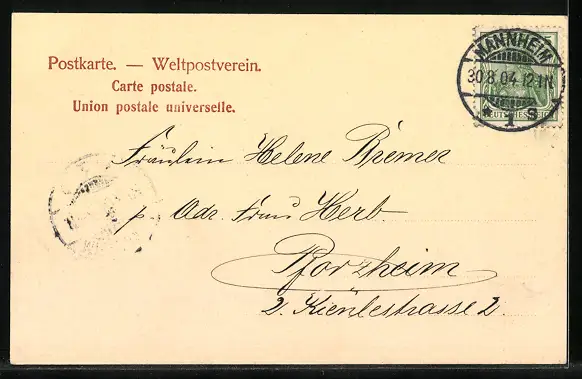 Postkarte. — Weltpostverein.
Carte postale.
Union postale universelle.
MANNHEIM
30.8.04.12-1N
* 1 S
DEUTSCHES REICH
Fräulein Helene Bremer
p. Adr. Frau Herb.
Pforzheim
2. Kienlestrasse 2.